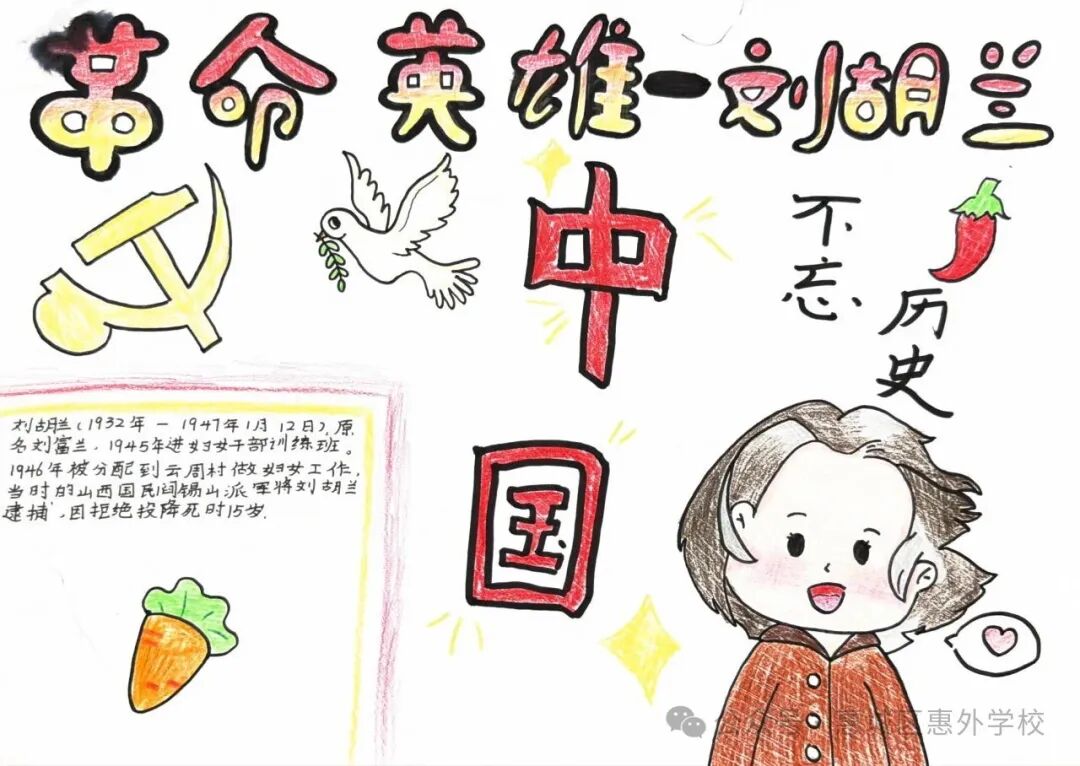 革命英雄一刘胡兰
中国
不忘
历史
刘胡兰(1932年一1947年1月12日),原
名刘富兰.1945年进妇女干部训练班。
1946年被分配到云周村做妇女工作,
当时的山西国民阎锡山派军将刘胡兰
逮捕,因拒绝投降死时15岁.
公众号 惠城区惠外学校